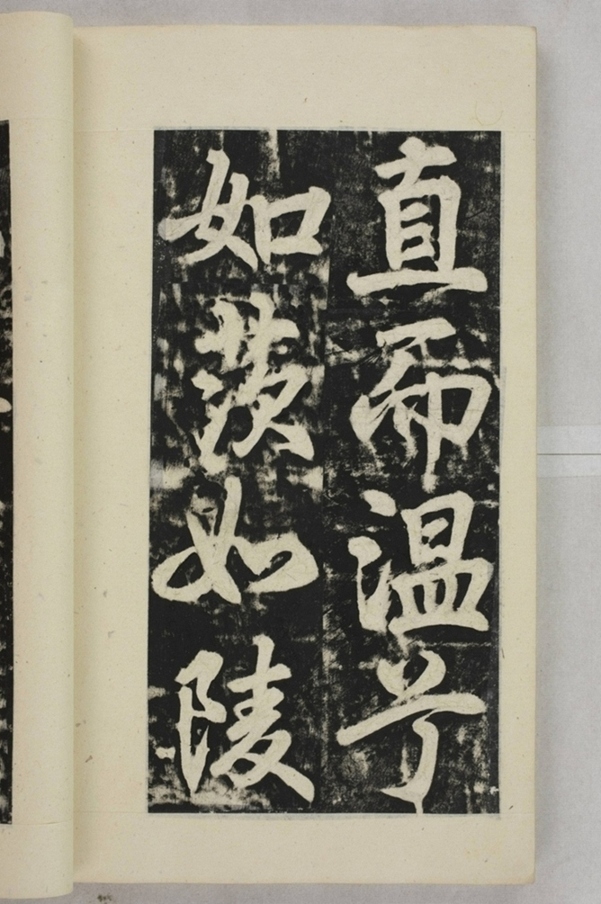 直而温兮
如茨如陵